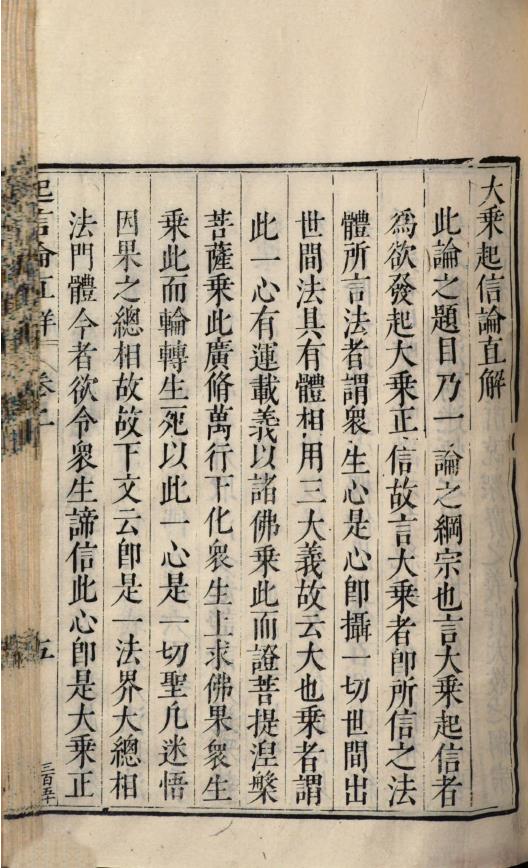 大乘起信論直解
此論之題目乃一論之綱宗也言大乘起信者
爲欲發起大乘正信故言大乘者卽所信之法
體所言法者謂衆生心是心卽攝一切世間出
世間法具有體相用三大義故云大也乘者謂
此一心有運載義以諸佛乘此而證菩提湼槃
菩薩乘此廣脩萬行下化衆生上求佛果衆生
乘此而輪轉生死以此一心是一切聖凡迷悟
因果之總相故故下文云卽是一法界大總相
法門體今者欲令衆生諦信此心卽是大乘正
起信論直解 卷上 五
三百五十